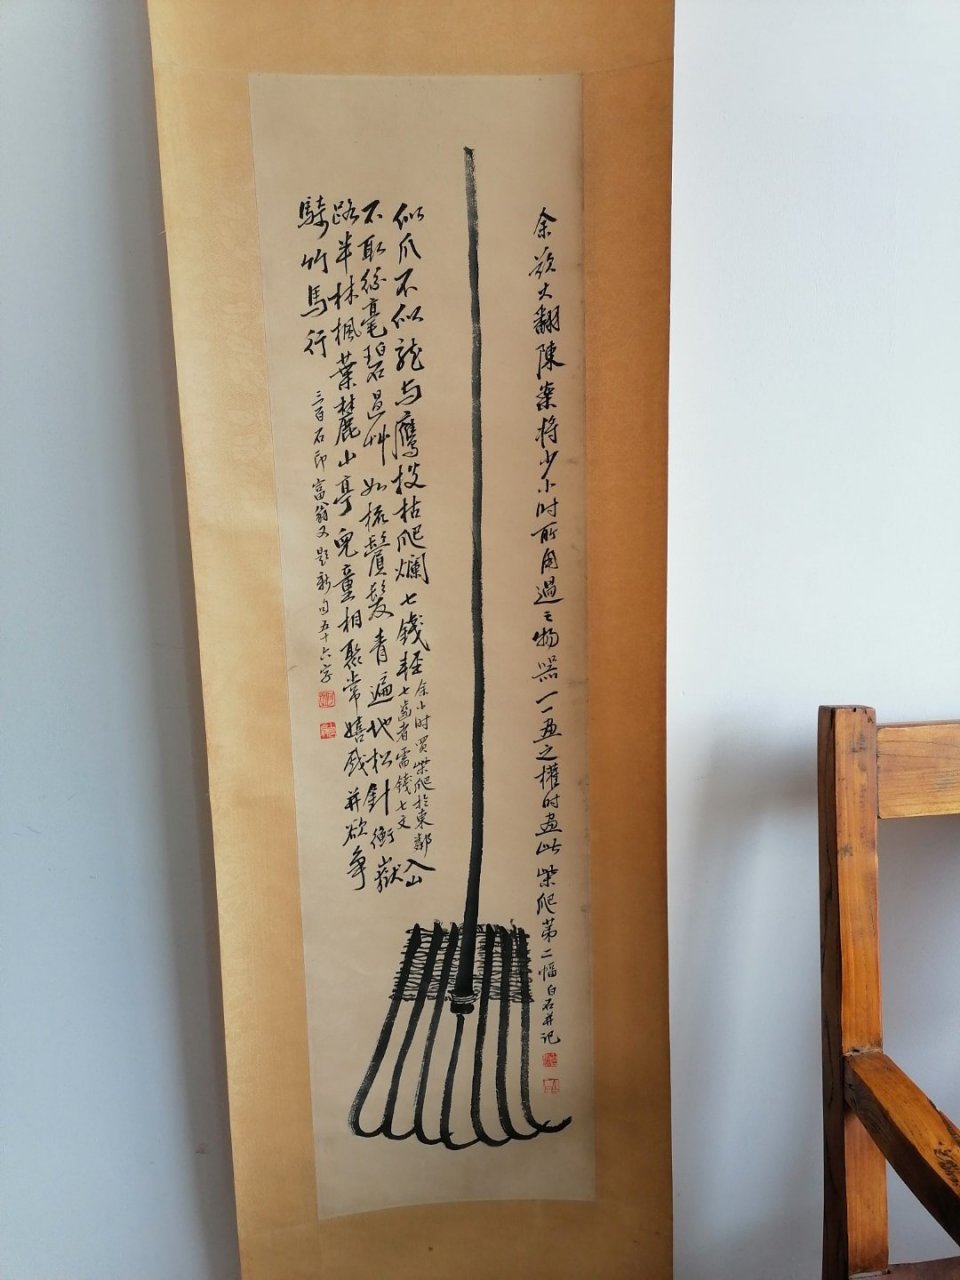 余欲大翻陳案將少小时所用過之物器一一画之權时畫此柴爬第二幅白石并记
似爪不似龍与鷹搜枯爬爛七錢輕
余小时買柴爬於東鄰
七齒者需錢七文
入山
不取絲毫碧過草如梳鬢髮青遍地松針衡嶽
路半林楓葉麓山亭兒童相聚常嬉戲並欲爭
騎竹馬行
三百石印富翁又題新句五十六字